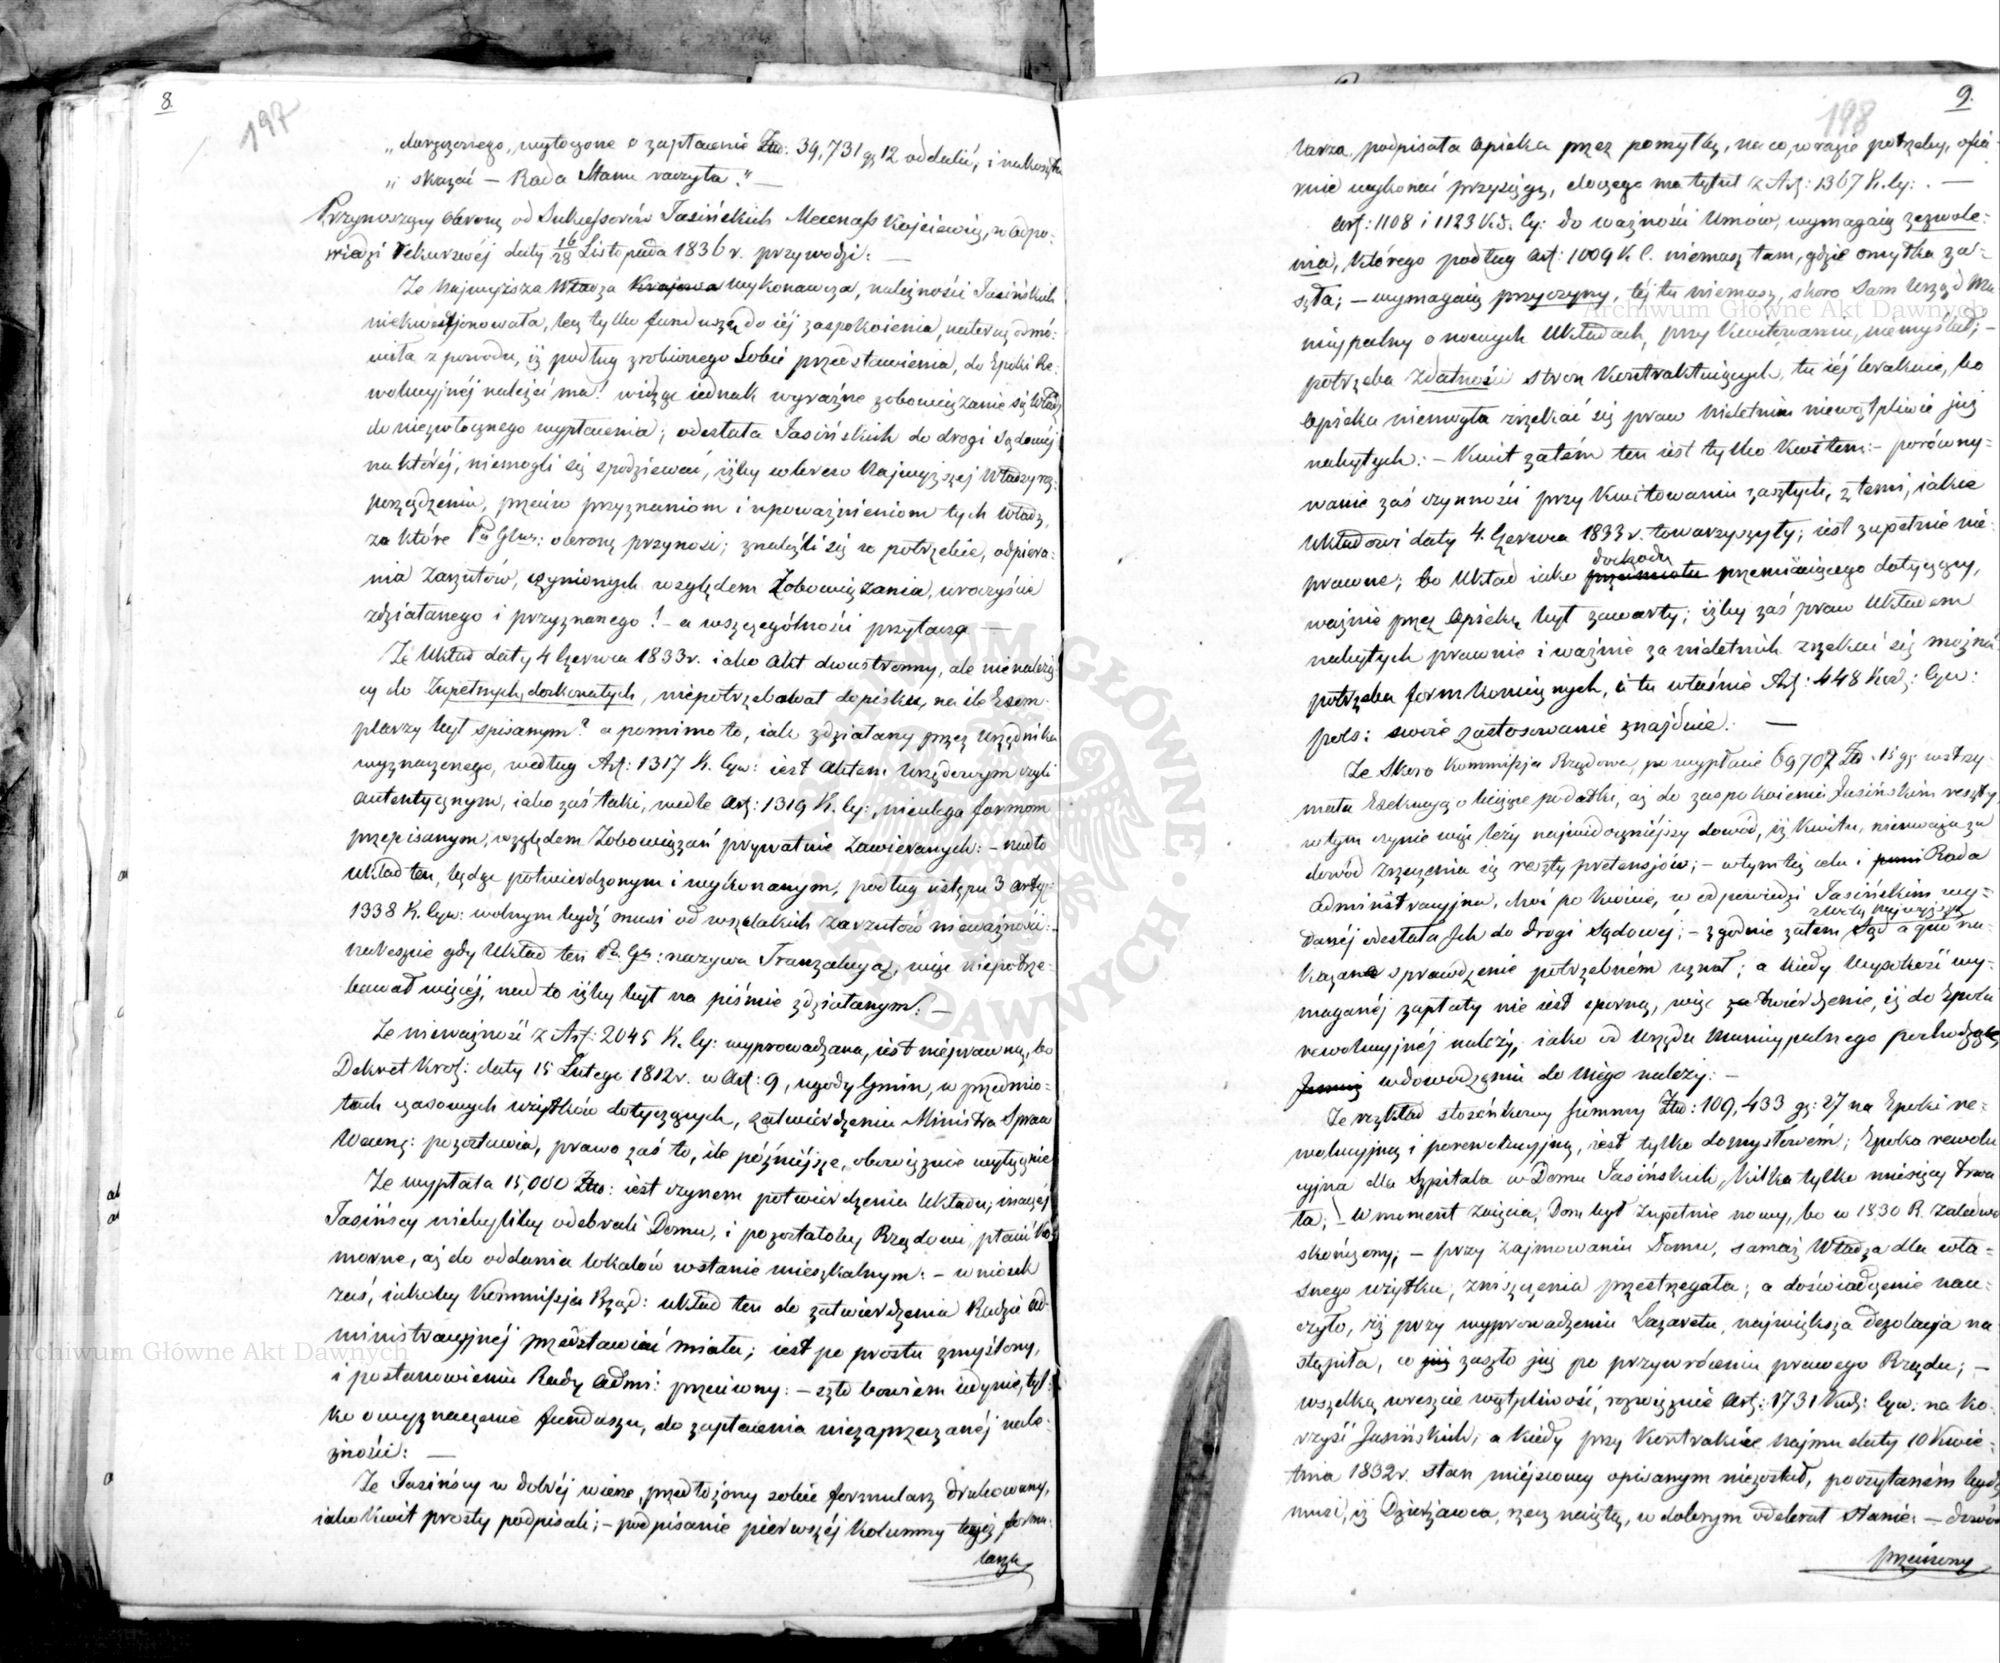 8.
197
„darzonego, wytoczone o zapłacenie Złtp: 39,731 gr 12 oddalić, i na koszta
„i skazać — Rada Stanu raczyła." —
Przynoszący obronę od Sukcessorów Jasińskich Mecenass Wojciewicz, w odpo-
wiedzi rekursowéj daty 16/28 Listopada 1836 r. przywodzi: —
Że Najwyższa Władza Krajowa wykonawcza, należności Jasińskich
niekwestjonowała, lecz tylko funduszu do iéj zaspokoienia, na teraz odmó-
wiła z powodu, iż podług zrobionego Sobie przedstawienia, do Epoki Re-
wolucyjnéj należeć ma! widząc iednak wyraźne zobowiązanie się Władz
do niezwłocznego wypłacenia; odesłała Jasińskich do drogi Sądowéj
na któréj, niemogli się spodziewać, iżby wbrew Najwyższej Władzy roz-
porządzeniu, przeciw przyznaniom i upoważnieniom tych Władz,
za które Pr Glna: obronę przynosi; znaleźli się w potrzebie, odpiera-
nia Zarzutów, czynionych względem Zobowiązania, uroczyście
zdziałanego i przyznanego! — a w szczególności przytacza —
Że Układ daty 4 Czerwca 1833 r. iako Akt dwustronny, ale nienależą-
cy do Zupełnych, doskonałych, niepotrzebował dopisku, na ile Exem-
plarzy był spisanym? a pomimo to, iak zdziałany przez Urzędnika
wyznaczonego, według Art: 1317 K. Cyw: iest Aktem Urzędowym czyli
autentycznym, iako zaś taki, wedle Art: 1319 K. Cy:, nieulega formom
przepisanym, względem Zobowiązań prywatnie Zawieranych: — nadto
Układ ten, będąc potwierdzonym i wykonanym, podług ustępu 3 Arty:
1338 K. Cyw: wolnym bydź musi od wszelakich Zarzutów nieważności: —
nakoniec gdy Układ ten Pr. Gn: nazywa Tranzakcyą, więc niepotrze-
bował więcéj, nad to iżby był na piśmie zdziałanym. —
Że nieważność z Art: 2045 K. Cy: wyprowadzana, iest nieprawną, bo
Dekret Król: daty 15 Lutego 1812 r. w Art: 9, ugody Gmin, w przedmio-
tach czasowych użytków dotyczących, zatwierdzeniu Ministra Spraw
Wewnę: pozostawia, prawo zaś to, ile późniejsze, obowiązuie wyłącznie
Że wypłata 15,000 Złtp: iest czynem potwierdzenia Układu; inaczéj
Jasińscy niebyliby odebrali Domu, i pozostałoby Rządowi, płacić Ko-
morne, aż do oddania lokalów w stanie mieszkalnym: — wniosek
zaś, iakoby Kommissja Rząd: układ ten do zatwierdzenia Radzie Ad-
ministracyjnéj przedstawiać miała; iest po prostu zmyślony,
i postanowieniu Rady Admi: przeciwny: — szło bowiem iedynie, tyl-
ko o wyznaczenie funduszu, do zapłacenia niezaprzeczanéj nale-
żności: —
Że Jasińscy w dobréj wierze, przedłożony sobie formularz drukowany,
iako Kwit prosty podpisali; — podpisanie pierwszéj Kolumny tegoż formu-
larza
9.
198
larza, podpisała Opieka przez pomyłkę, na co, w razie potrzeby, ofia-
ruie wykonać przysięgę, do czego ma tytuł z Art: 1367 K. Cy: . —
Art: 1108 i 1123 Kod. Cy: do ważności Umów, wymagaią zezwole-
nia, którego podług Art: 1009 K. C. niemasz tam, gdzie omyłka za-
szła; — wymagaią przyczyny, téj tu niemasz, skoro Sam Urząd Mu-
nicypalny o nowych Układach, przy Kwitowaniu, niemyślał; —
potrzeba Zdatności stron Kontraktuiących, tu iéj brakuie, bo
Opieka niemogła zrzekać się praw Nieletnim niewątpliwie już
nabytych: — Kwit zatém ten iest tylko Kwitem: — porówny-
wanie zaś czynności przy Kwitowaniu zaszłych, z temi, iakie
Układowi daty 4. Czerwca 1833 r. towarzyszyły; iest zupełnie nie-
prawne; bo Układ iako przedmiotu dochodu przemiiaiącego dotyczący,
ważnie przez Opiekę był zawarty; iżby zaś praw Układem
nabytych prawnie i ważnie za nieletnich zrzekać się można
potrzeba form koniecznych, i tu właśnie Art: 448 Kod: Cyw:
pols: swoie zastosowanie znajduie. —
Że Skoro Kommissja Rządowa, po wypłacie 69707 Zł. 15 gr. wstrzy-
mała Exekucyą o bieżące podatki, aż do zaspokoienia Jasińskim reszty
w tym czynie więc leży najwidoczniejszy dowód, iż Kwitu, nieuważa za
dowód Zrzeczenia się reszty pretensjów; — w tym też celu i Rada
Administracyjna, choć po Kwicie, w odpowiedzi Jasińskim wy-
danéj odesłała Ich do drogi Sądowéj; — zgodnie zatem Sąd a quo na-
kazane sprawdzenie potrzebném uznał; a kiedy Wysokość wy-
maganéj zapłaty nie iest sporną, więc twierdzenie, iż do Epoki
rewolucyjnéj należy, iako od Urzędu Municypalnego pochodzące,
udowodzeniu do Niego należy: —
Że rozkład stosunkowy summy Złtp: 109,433 gr: 27 na Epoki re-
wolucyjną i porewolucyjną, iest tylko domysłowém; Epoka rewolu-
cyjna dla Szpitala w Domu Jasińskich, kilka tylko miesięcy trwa-
ła; — W moment zajęcia, Dom był Zupełnie nowy, bo w 1830 R. zaledwo
skończony; — przy Zajmowaniu Domu, samaż Władza dla wła-
snego użytku, zniszczenia przestrzegała; a doświadczenie nau-
czyło, iż przy wyprowadzeniu Lazaretu, największa dezolacja na-
stąpiła, co zaszło już po przywróceniu prawego Rządu; —
wszelką wreszcie wątpliwość, rozwięzuie Art: 1731 Kod: Cyw: na ko-
rzyść Jasińskich; a kiedy przy Kontrakcie Najmu daty 10 Kwie-
tnia 1832 r. stan miéjscowy opisanym niezostał, poczytaném bydź
musi, iż Dzierżawca, rzecz najętą, w dobrym odebrał Stanie: — dowód
przeciwny
Archiwum Główne Akt Dawnych
Archiwum Główne Akt Dawnych
ARCHIWUM GŁÓWNE AKT DAWNYCH